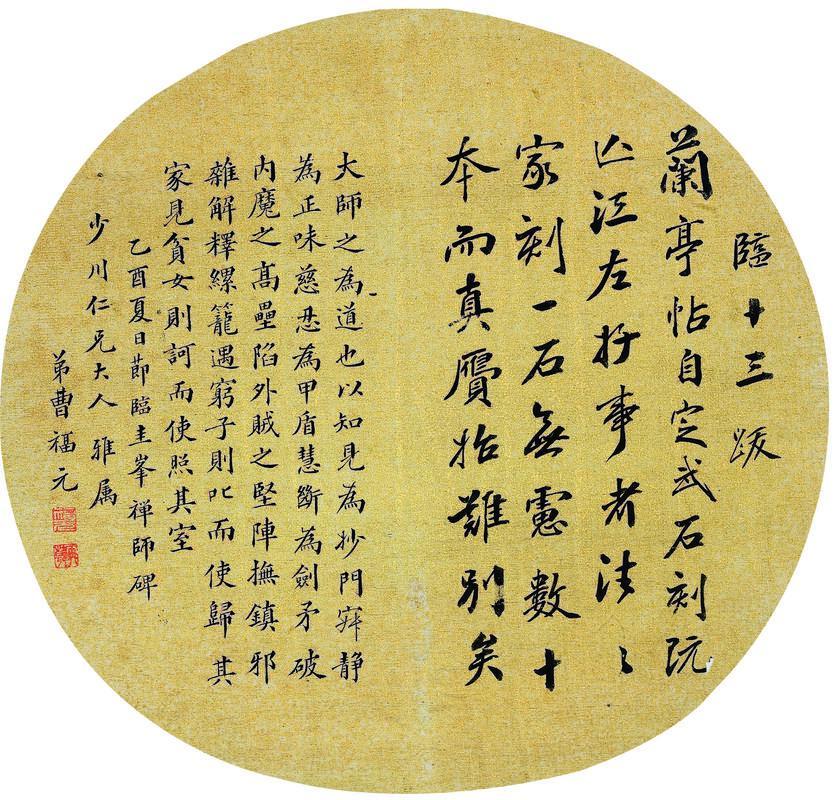 臨十三跋
蘭亭帖自定武石刻既
亡江左好事者往〻
家刻一石無慮數十
本而真贗始難別矣
大師之為道也以知見為妙門寂静
為正味慈忍為甲盾慧斷為劍矛破
内魔之髙壘陷外賊之堅陣撫鎮邪
雜解釋縲籠遇窮子則叱而使歸其
家見貧女則訶而使照其室
乙酉夏日節臨圭峯禅師碑
少川仁兄大人 雅属
弟曹福元